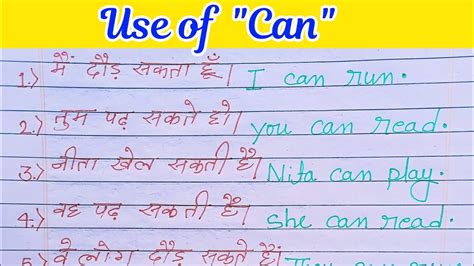 Use of "Can"
1.) मैं दौड़ सकता हूँ। I can run.
2.) तुम पढ़ सकते हो। you can read.
3.) नीता खेल सकती है। Nita can play.
4.) वह पढ़ सकती है। she can read.
5.) वे लोग दौड़ सकते हैं। They can run.